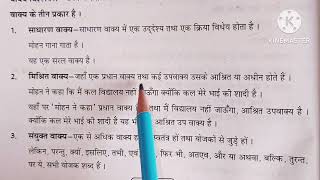 वाक्य के तीन प्रकार हैं ।
1. साधारण वाक्य—साधारण वाक्य में एक उद्देश्य तथा एक क्रिया विधेय होता है ।
मोहन गाना गाता है ।
यह एक सरल वाक्य है ।
2. मिश्रित वाक्य—जहाँ एक प्रधान वाक्य तथा कई उपवाक्य उसके आश्रित या अधीन होते हैं ।
मोहन ने कहा कि मैं कल विद्यालय नहीं जाऊँगा क्योंकि कल मेरे भाई की शादी है ।
यहाँ पर 'मोहन ने कहा' प्रधान वाक्य है तथा मैं विद्यालय नहीं जाऊँगा, आश्रित उपवाक्य
क्योंकि कल मेरे भाई की शादी है यह भी आश्रित उप वाक्य है ।
3. संयुक्त वाक्य—एक से अधिक वाक्य हों स्वतंत्र हों तथा योजकों से जुड़े हों ।
लेकिन, परन्तु, क्यों, इसलिए, तभी, फिर भी, अतएव, और या अथवा, बल्कि, तुरन्त,
पर ये, सभी योजक शब्द हैं ।
KINEMASTER